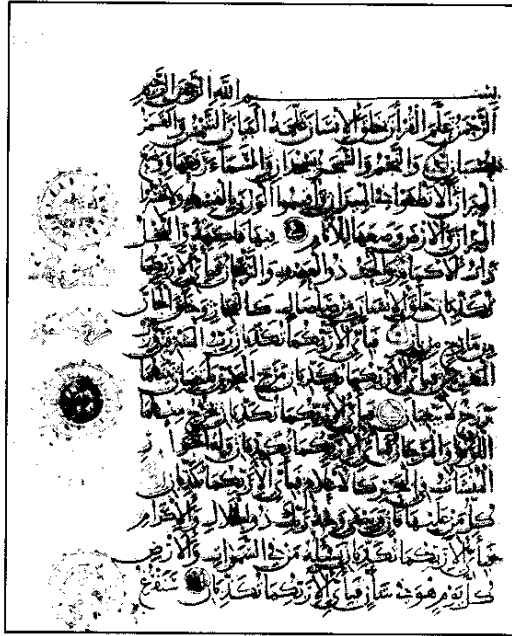 بسم الله الرحمن الرحيم
الرحمن علم القرآن خلق الإنسان علمه البيان الشمس والقمر
بحسبان والنجم والشجر يسجدان والسماء رفعها ووضع
الميزان ألا تطغوا في الميزان وأقيموا الوزن بالقسط ولا تخسروا
الميزان والأرض وضعها للأنام فيها فاكهة والنخل
ذات الأكمام والحب ذو العصف والريحان فبأي آلاء ربكما
تكذبان خلق الإنسان من صلصال كالفخار وخلق الجان
من مارج من نار فبأي آلاء ربكما تكذبان رب المشرقين ورب
المغربين فبأي آلاء ربكما تكذبان مرج البحرين يلتقيان بينهما
برزخ لا يبغيان فبأي آلاء ربكما تكذبان يخرج منهما
اللؤلؤ والمرجان فبأي آلاء ربكما تكذبان وله الجوار
المنشآت في البحر كالأعلام فبأي آلاء ربكما تكذبان
كل من عليها فان ويبقى وجه ربك ذو الجلال والإكرام
فبأي آلاء ربكما تكذبان يسأله من في السموات والأرض
كل يوم هو في شأن فبأي آلاء ربكما تكذبان سنفرغ